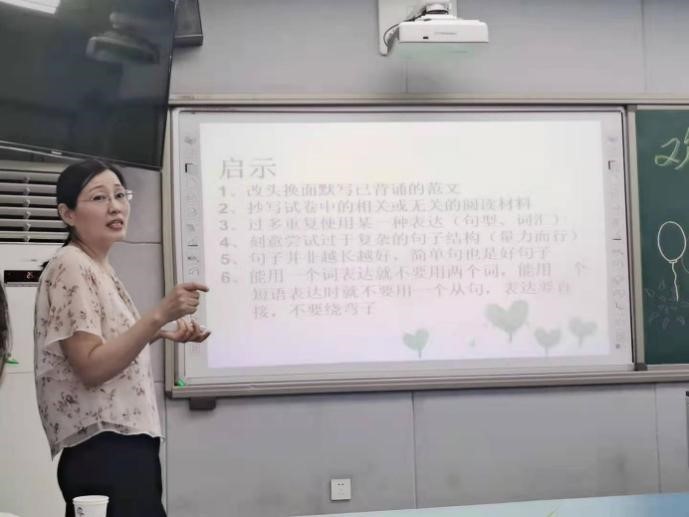 启示
1、改头换面默写已背诵的范文
2、抄写试卷中的相关或无关的阅读材料
3、过多重复使用某一种表达（句型、词汇）
4、刻意尝试过于复杂的句子结构（量力而行）
5、句子并非越长越好，简单句也是好句子
6、能用一个词表达就不要用两个词，能用一个
短语表达时就不要用一个从句，表达要直
接，不要绕弯子
欢